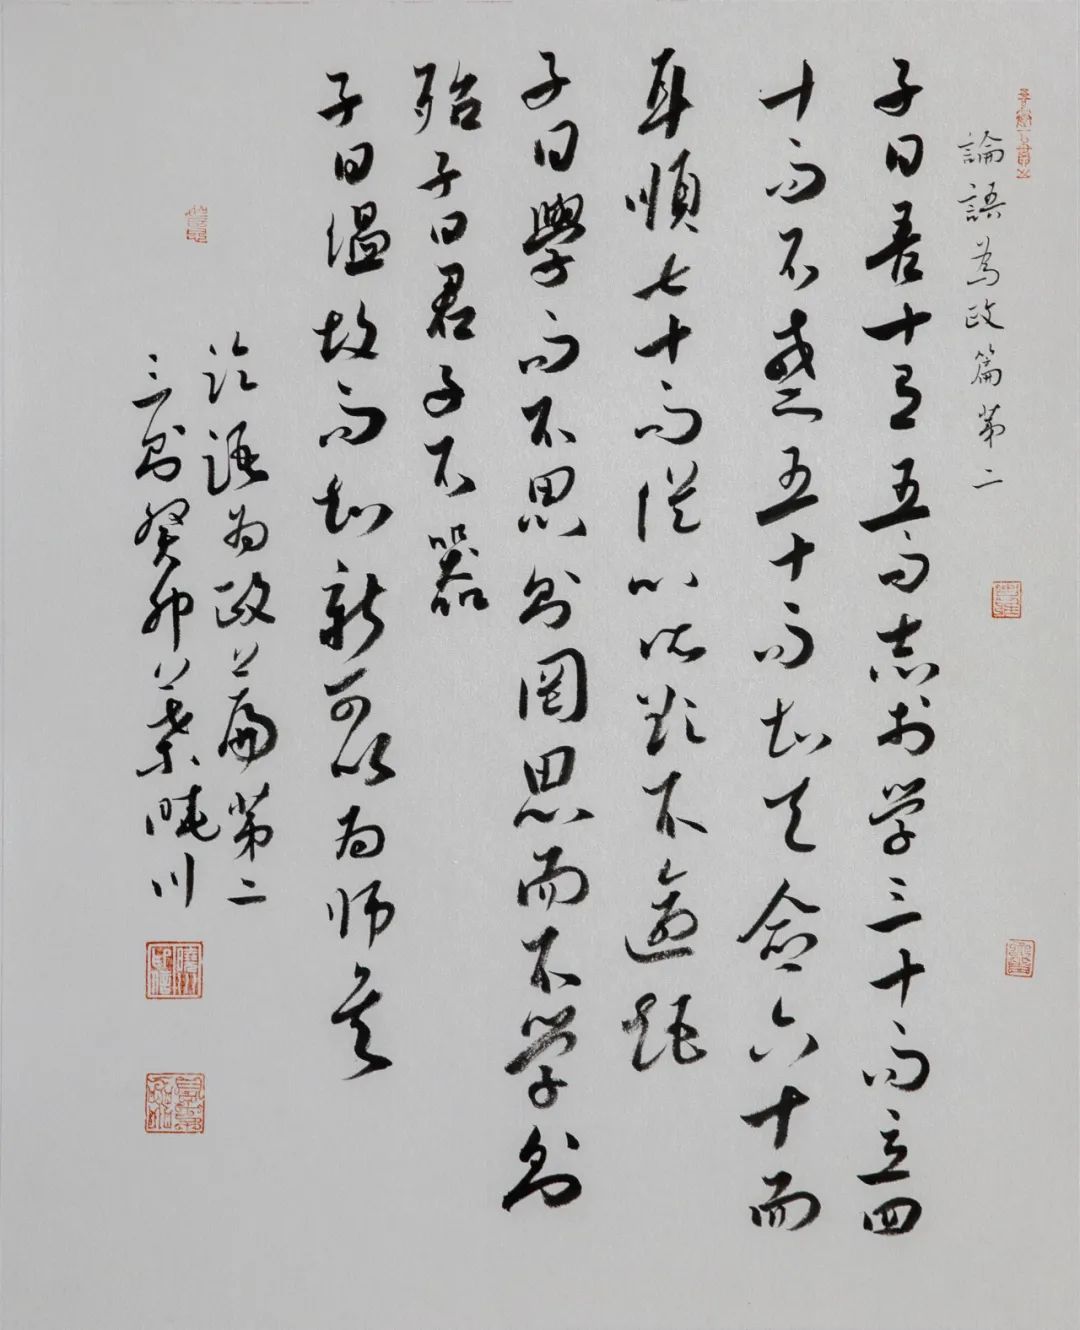 論語為政篇第二
子曰吾十有五而志於学三十而立四
十而不惑五十而知天命六十而
耳順七十而從心所欲不逾矩
子曰學而不思則罔思而不学則
殆子曰君子不器
子曰温故而知新可以为師矣
論語为政篇第二
三則癸卯葉曉川